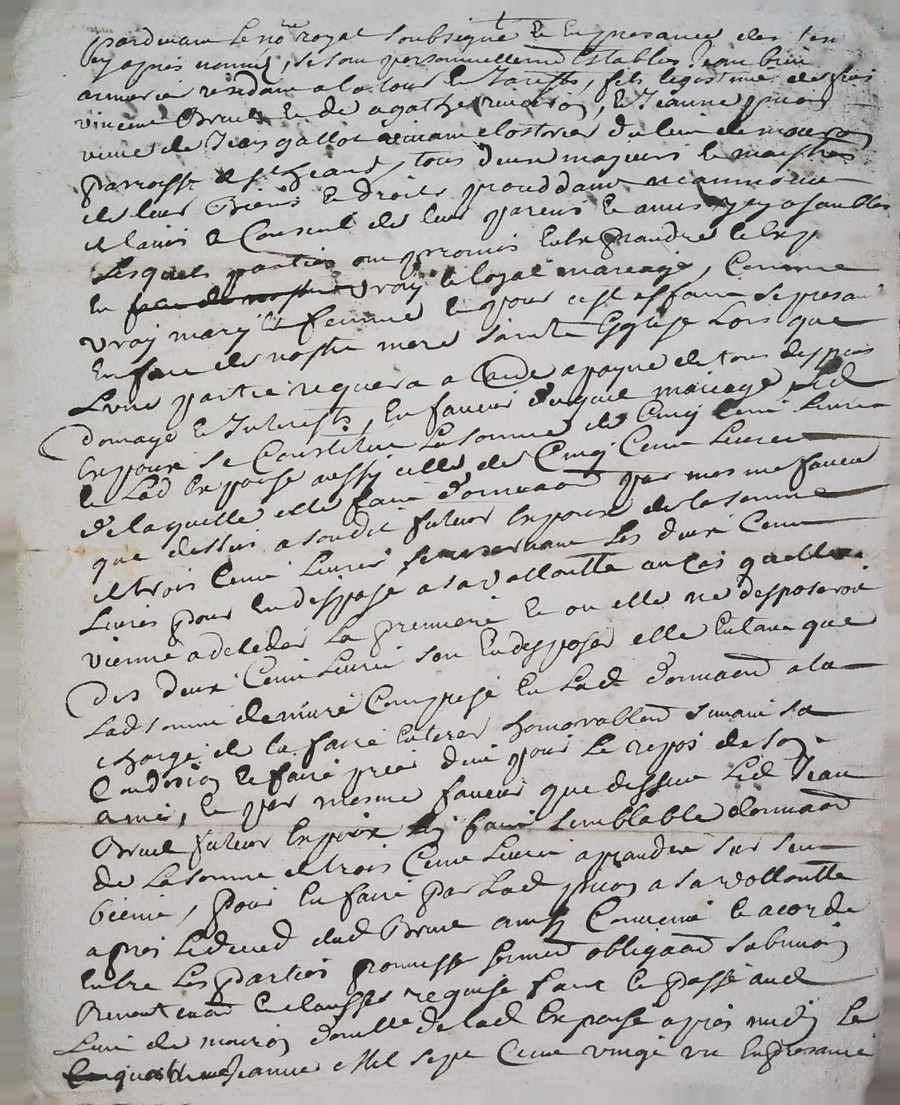 pardevant le no.re royal soubsigné et en presance des tes
cy après nommés, se sont personnellement establis Jean brun
rezidant a la tour de , fils legistime de feu
vincens Brun et de agathe , et Jeanne
veuve de Jean gallot du lieu de mouros
parroisse de St Jean, tous deux majeurs et maistres
de leur Biens et droits procedant neanmoins
de l'avis et Conseil de leur parens et amis assamblés
Lesquels parties ont promis entreprandre
en vray et loyal mareage, Comme
vray mary et femme et pour cest effait se presant
en face de nostre mere sainte Esglise Lors que
L'une partie requera a Laude a payne de tous despans
domage et Interests, en faveur duquel mariage led
Expoux se Constitue La somme de Cinq Cens Livres
et Lad Expouse aussy celle de Cinq Cens Livres
de laquelle elle fait donnaon par mesme faveur
que dessus a son dit futeur Expoux de la somme
de trois Cens Livres se rezervant Les deux Cens
Livres pour en disposé a sa vollontté au Cas quelle
vienne a deceder La premiere et ou elle ne desposeroit
des deux Cens Livres son en despozer elle entant que
Lad somme demure Comprise en Lad donnaon a la
charge de la faire enterer honnorablemt suivant sa
Condision et faire prier dieu pour Le repos de son
ame, et par mesme faveur que dessus Led Jean
Brun futeur Expoux fait semblable donnaon
de La somme de trois Cens Livres a prandre sur ses
biens, pour en faire par Lad a sa vollontté
après Le deced dud Brun ainsy Convenu et acordé
Entre Les parties promesse serment obligaon submion
Renontiaon et clausses requise fait et passé aud
Lieu de mouros de lad Expouse après midy Le
Janvier Mil sept Cens vingt un En presance